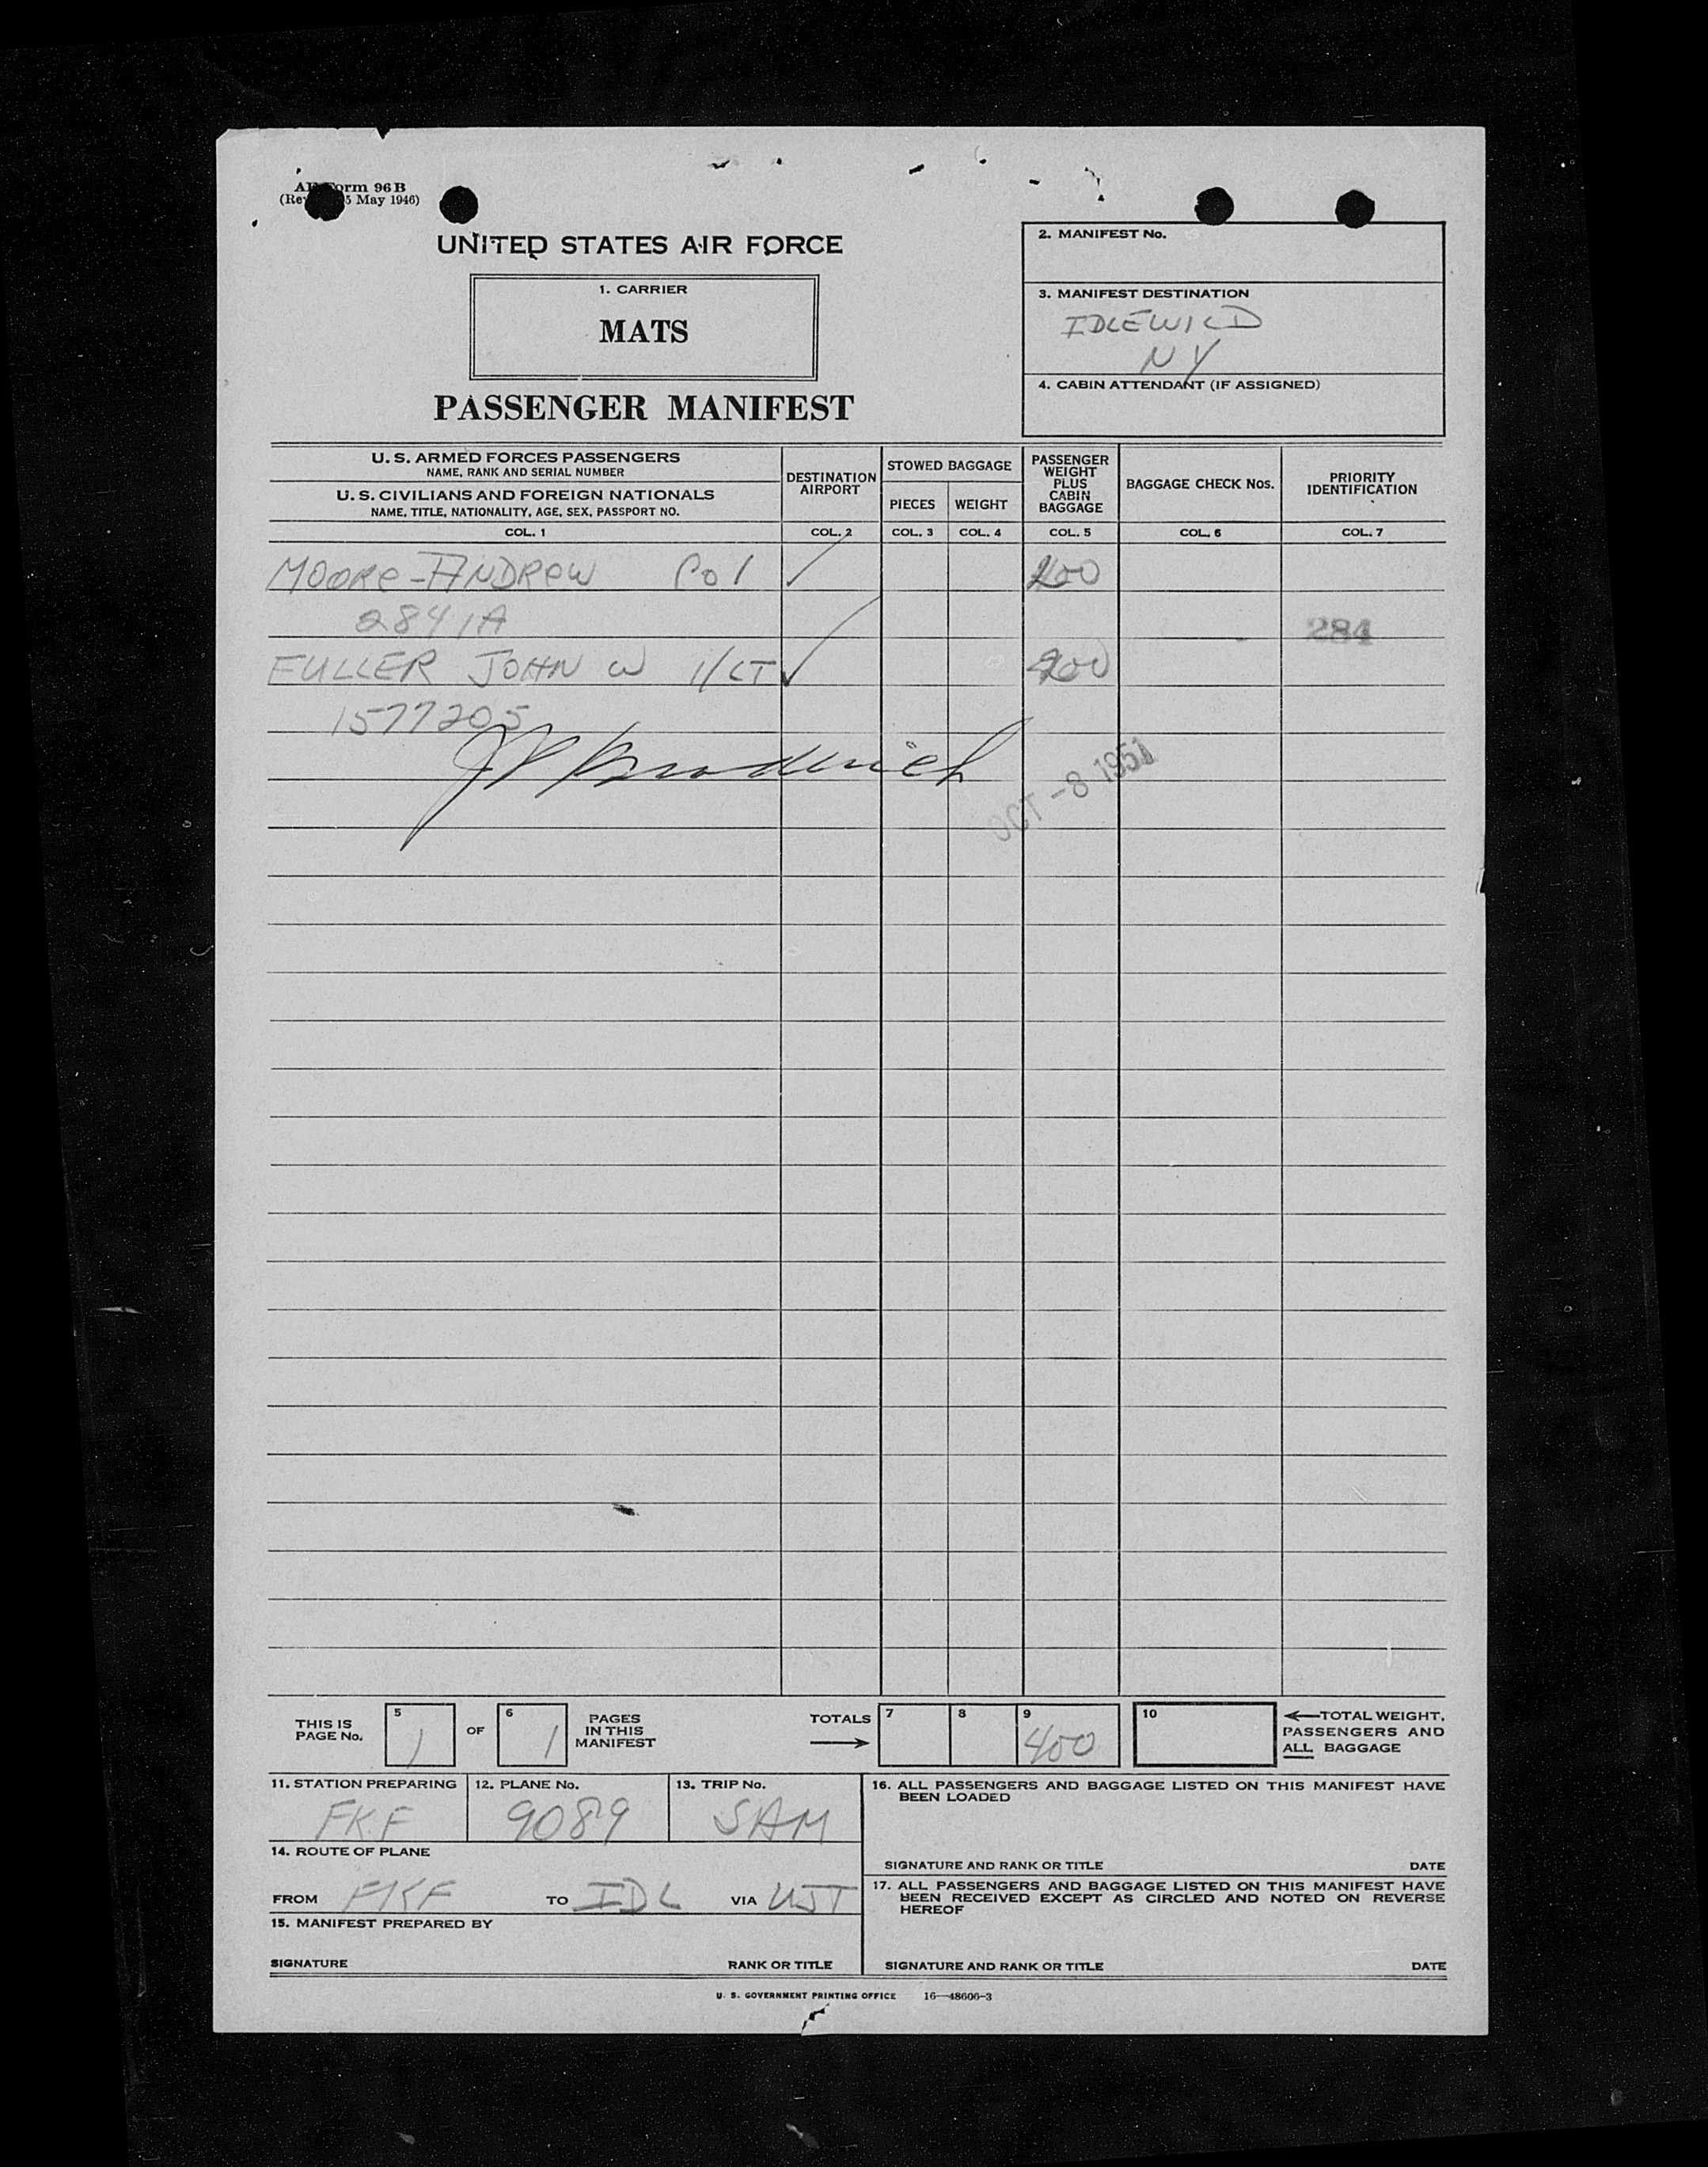 AF Form 96 B
(Rev. 5 May 1946)
UNITED STATES AIR FORCE
1. CARRIER
MATS
PASSENGER MANIFEST
2. MANIFEST No.
3. MANIFEST DESTINATION
IDLEWILD
NY
4. CABIN ATTENDANT (IF ASSIGNED)
U. S. ARMED FORCES PASSENGERS
NAME, RANK AND SERIAL NUMBER
U. S. CIVILIANS AND FOREIGN NATIONALS
NAME, TITLE, NATIONALITY, AGE, SEX, PASSPORT NO.
DESTINATION
AIRPORT
STOWED BAGGAGE
PIECES WEIGHT
PASSENGER
WEIGHT
PLUS
CABIN
BAGGAGE
BAGGAGE CHECK Nos.
PRIORITY
IDENTIFICATION
COL. 1 COL. 2 COL. 3 COL. 4 COL. 5 COL. 6 COL. 7
MOORE-ANDREW Col ✓ 200
2841A 284
FULLER JOHN W 1/LT ✓ 200
1577205
OCT -8 1951
THIS IS
PAGE No.
5 1
OF
6 1
PAGES
IN THIS
MANIFEST
TOTALS →
7
8
9 400
10
←TOTAL WEIGHT,
PASSENGERS AND
ALL BAGGAGE
11. STATION PREPARING
FKF
12. PLANE No.
9089
13. TRIP No.
SAM
14. ROUTE OF PLANE
FROM FKF TO IDL VIA WJT
15. MANIFEST PREPARED BY
SIGNATURE RANK OR TITLE
16. ALL PASSENGERS AND BAGGAGE LISTED ON THIS MANIFEST HAVE
BEEN LOADED
SIGNATURE AND RANK OR TITLE DATE
17. ALL PASSENGERS AND BAGGAGE LISTED ON THIS MANIFEST HAVE
BEEN RECEIVED EXCEPT AS CIRCLED AND NOTED ON REVERSE
HEREOF
SIGNATURE AND RANK OR TITLE DATE
U. S. GOVERNMENT PRINTING OFFICE 16—48606-3